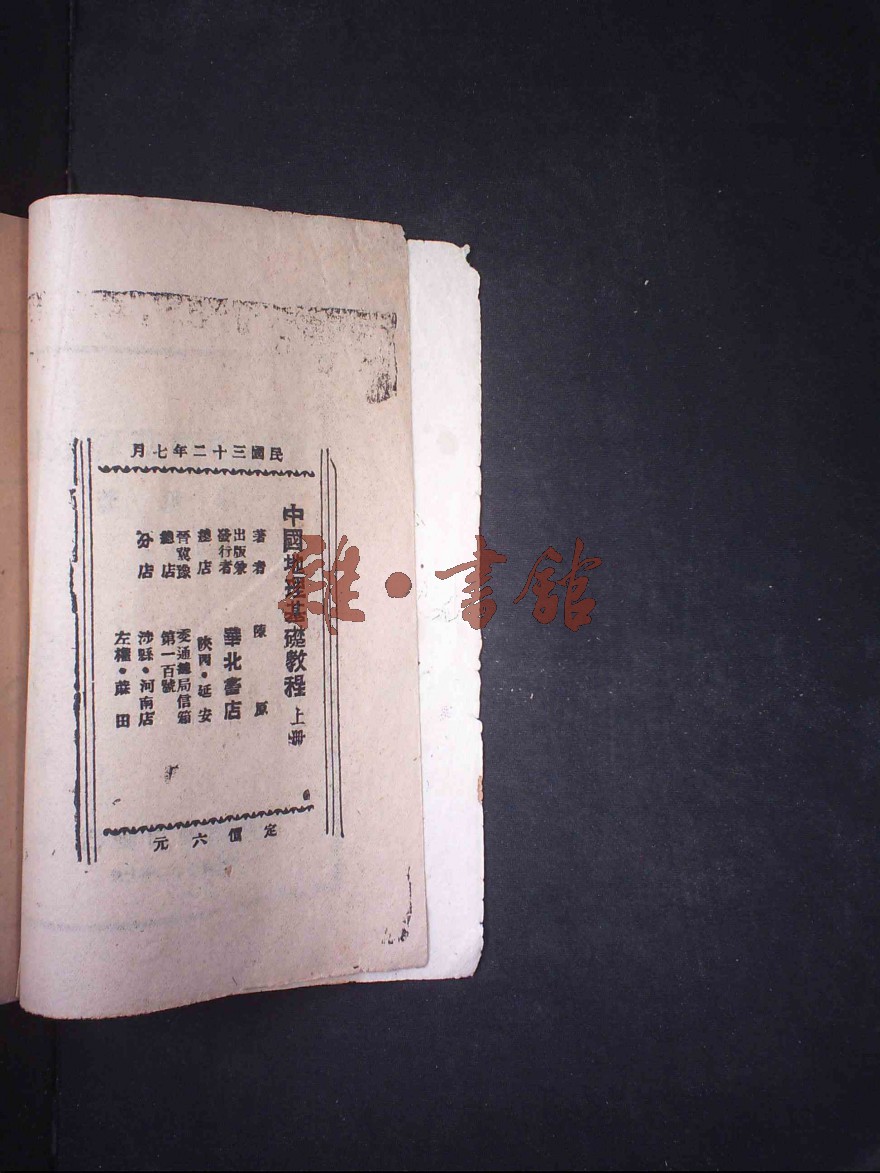 民國三十二年七月
中國地理基礎教程 上册
著者 陳原
出版兼
發行者 華北書店
總店 陝西·延安
晉冀豫
總店 交通總局信箱
第一百號
分店 涉縣·河南店
左權·蔴田
定價六元
雜·書館